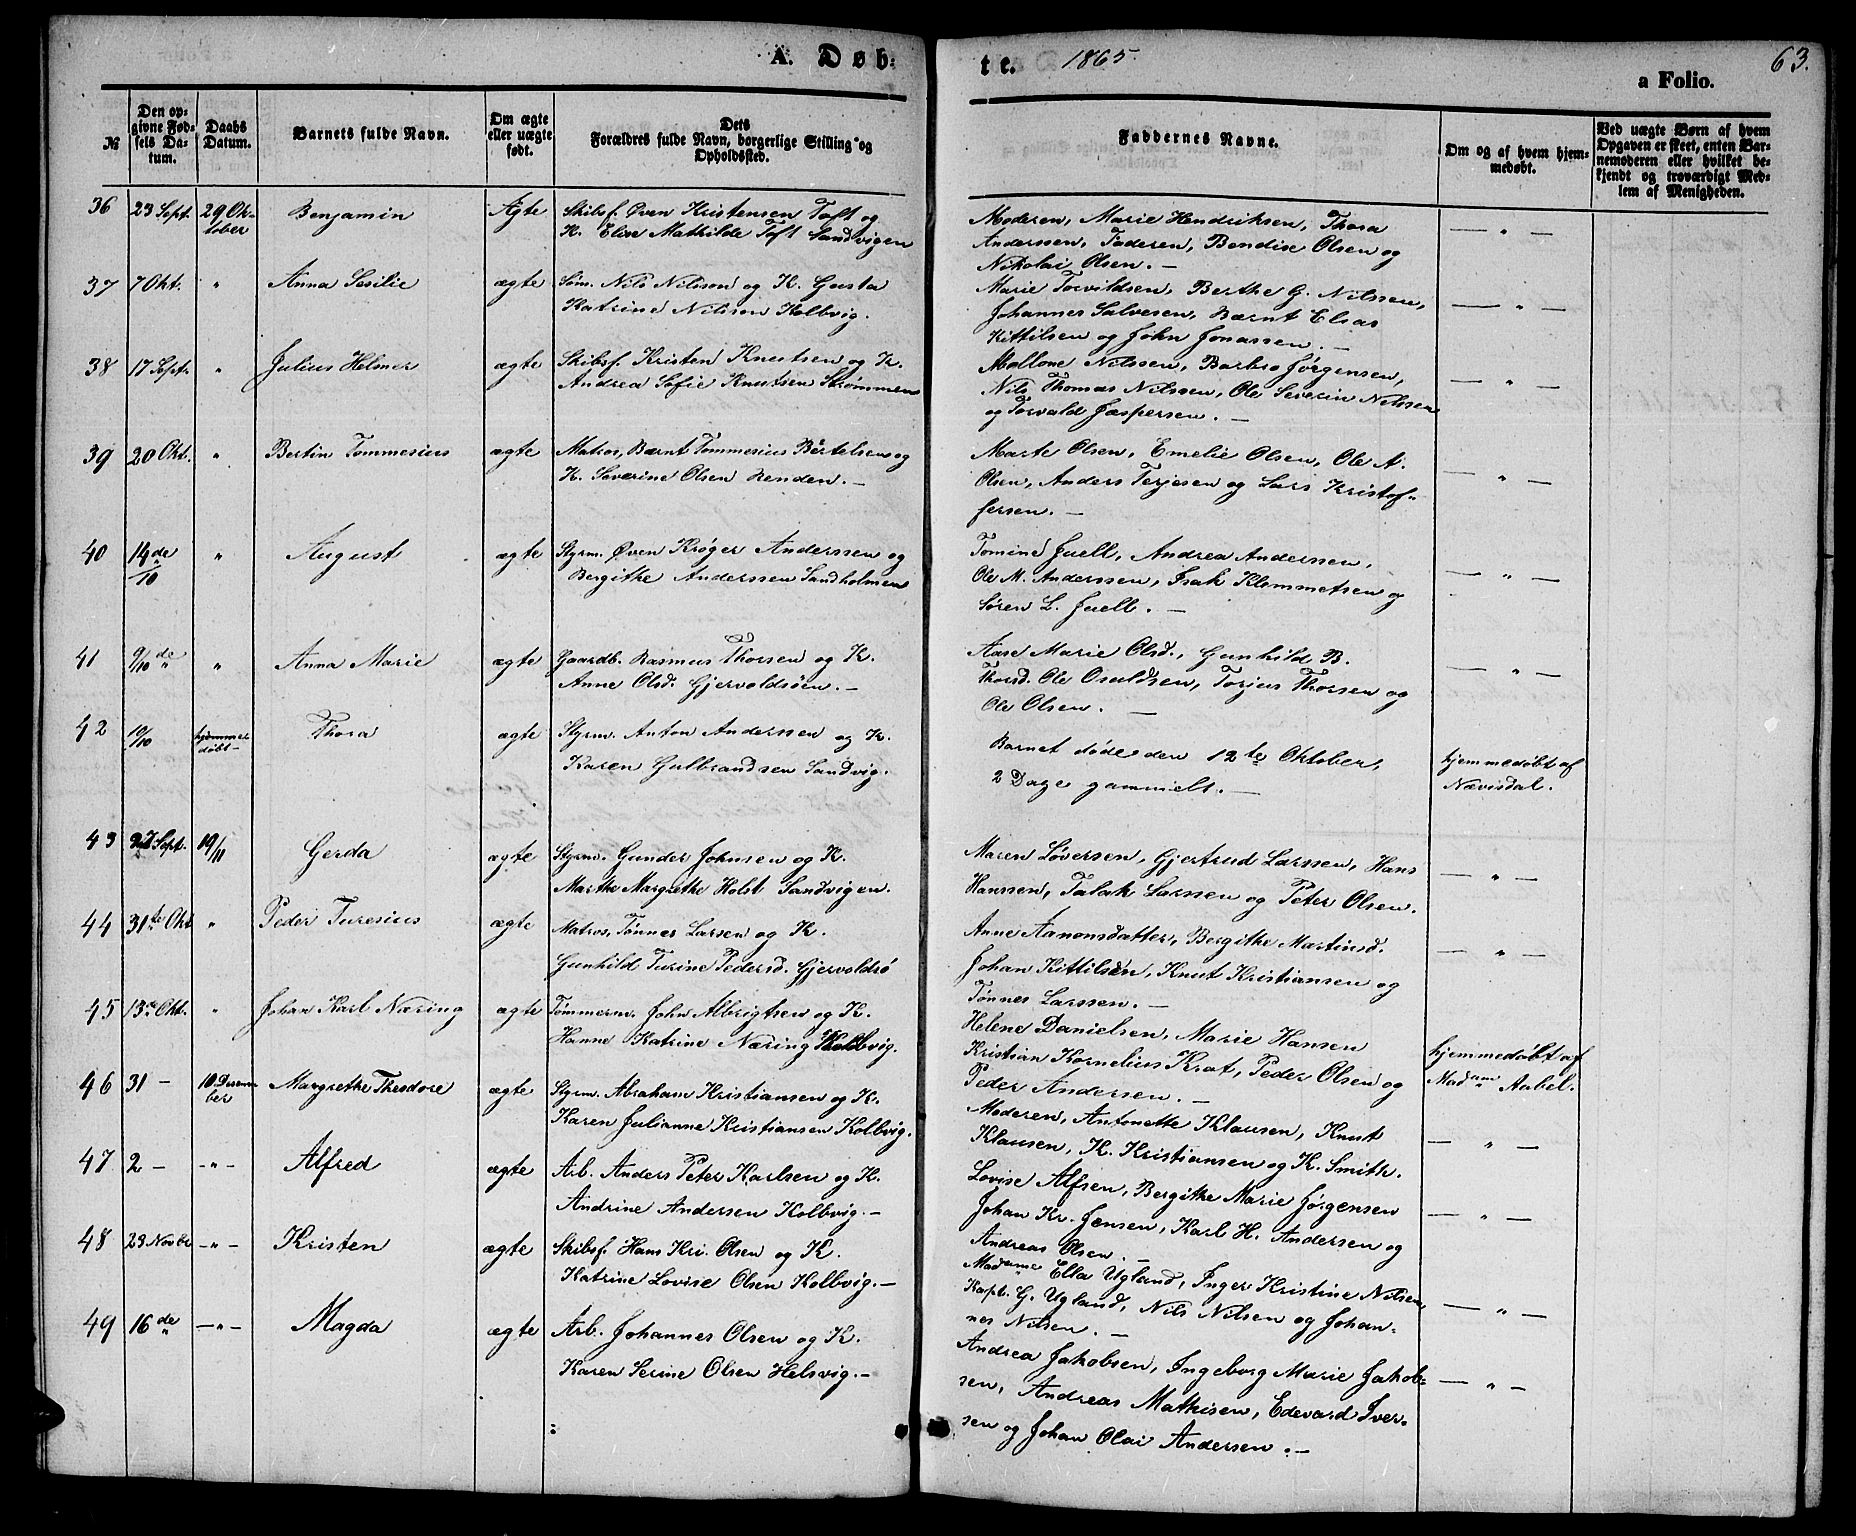 A. Døb-
te. 1865. 63.
a Folio.
№
Den op-
givne Fød-
sels Da-
tum.
Daabs
Datum.
Barnets fulde Navn.
Om ægte
eller uægte
født.
Dets
Forældres fulde Navn, borgerlige Stilling og
Opholdssted.
Faddernes Navne.
Om og af hvem hjem-
medøbt.
Ved uægte Børn af hvem
Opgaven er skeet, enten Bar-
nemoderen eller hvilket be-
kjendt og troværdigt Med-
lem af Menigheden.
36 23 Sept. 29 Ok-
tober Benjamin Ægte Skibsf. Øven Kristensen Toft og
K. Elise Mathilde Toft Sandvigen
Moderen, Marie Hendriksen, Thora
Anderssen, Faderen, Bendix Olsen og
Nikolai Olsen. —
— " —
37 7 Okt. " Anna Sesilie ægte Søm. Nils Nilsson og K. Gusta
Katrine Nilsson Kolbvig.
Marie Torvildsen, Berthe G. Nilssen,
Johannes Salvesen, Bærnt Elias
Kittilsen og John Jonassen. —
— " —
38 17 Sept. " Julius Helmer ægte Skibsf. Kristen Knutsen og K.
Andrea Sofie Knutsen Strømmen
Mallone Nilssen, Barbro Jørgensen,
Nils Thomas Nilssen, Ole Severin Nilssen
og Torvald Jaspersen. —
— " —
39 20 Okt. " Bertin Tommesius ægte Matros, Bærnt Tommesius Bertelsen og
K. Severine Olsen Renden. —
Marte Olsen, Emelie Olsen, Ole A.
Olsen, Anders Terjesen og Lars Kristof-
fersen. —
— " —
40 14de/10 " August ægte Styrm. Øven Krøger Anderssen og
Bergithe Anderssen Sandholmen
Tomine Juell, Andrea Anderssen,
Ole M. Anderssen, Isak Klemmetsen og
Søren L. Juell. —
— " —
41 9/10 de " Anna Marie ægte Gaardb. Rasmus Thorsen og K.
Anne Olsd. Gjervoldsøen. —
Aase Marie Olsd., Gunhild B.
Thorsd. Ole Osuldsen, Torjus Thorsen og
Ole Olsen. —
— " —
42 10/10 hjemme-
døbt — Thora ægte Styrm. Anton Anderssen og K.
Karen Gulbrandsen Sandvig.
Barnet døde den 12te Oktober,
2 Dage gammelt. —
hjemmedøbt af
Nævisdal.
43 27 Sept. 19/11 Gerda ægte Styrm. Gunder Johnsen og K.
Marthe Margrethe Holst Sandvigen.
Maren Løversen, Gjertrud Larssen, Hans
Hanssen, Talak Larssen og Peter Olsen.
— " —
44 31te Okt " Peder Turesius ægte Matros, Tønnes Larsen og K.
Gunhild Turine Pedersd. Gjervoldsø
Anne Aanonsdatter, Bergithe Martinsd.
Johan Kittilsen, Knut Kristiansen og
Tønnes Larssen. —
— " —
45 13de Okt. " Johan Karl Næring ægte Tømmerm. John Albrigtsen og K.
Hanne Katrine Næring Kolbvig.
Helene Danielsen, Marie Hansen
Kristian Kornelius Krat, Peder Olsen og
Peder Andersen. —
hjemmedøbt af
Madam Aabel.
46 31 — 10 Decem-
ber Margrethe Theodore ægte Styrm. Abraham Kristiansen og K.
Karen Julianne Kristiansen Kolbvig.
Moderen, Antonette Klausen, Knut
Klausen, K. Kristiansen og K. Smith.
— " —
47 2 — — " — Alfred ægte Arb. Anders Peter Karlsen og K.
Andrine Andersen Kolbvig. —
Lovise Alfsen, Bergithe Marie Jørgensen
Johan Kr. Jensen, Karl H. Andersen og
Andreas Olsen. —
— " —
48 23 Novbr — " — Kristen ægte Skibsf. Hans Kri. Olsen og K.
Katrine Lovise Olsen Kolbvig. —
Madame Ella Ugland, Inger Kristine Nilsen,
Kapt. G. Ugland, Nils Nilsen og Johan-
nes Nilsen. —
— " —
49 16de — " — Magda ægte Arb. Johannes Olsen og K.
Karen Serine Olsen Helsvig. —
Andrea Jakobsen, Ingeborg Marie Jakob-
sen, Andreas Mathisen, Edevard Iver-
sen og Johan Olai Andersen. —
— " —